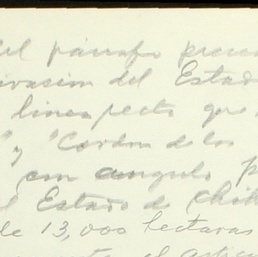 del párrafo prece
invasion del Estado
linea recta que
" y "Cordon de los
con angulo
el Estado de Chih
de 13,000 hectaras